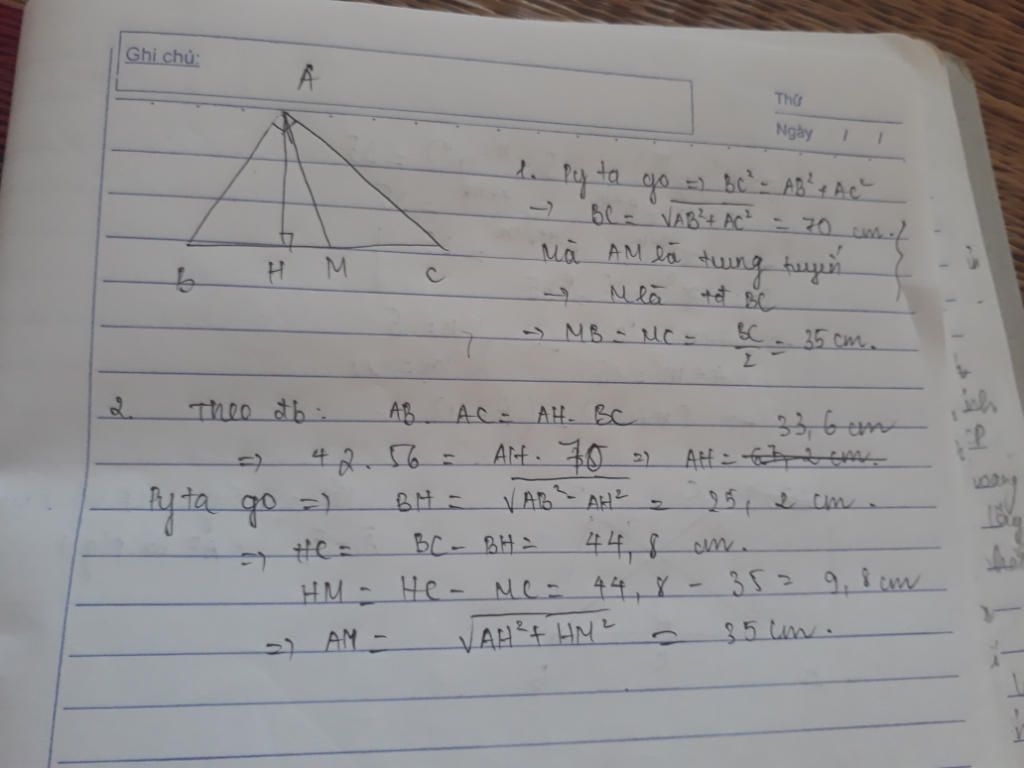 Ghi chú:
Thứ
Ngày / /
A
B H M C
1. Pytago => BC² = AB² + AC²
→ BC = √AB²+AC² = 70 cm.
Mà AM là trung tuyến
→ M là tđ BC
→ MB = MC = BC/2 = 35 cm.
2. Theo đb: AB. AC = AH. BC
33,6 cm
=> 42.56 = AH. 70 => AH =
Pytago => BH = √AB² - AH² = 25,2 cm.
=> HC = BC - BH = 44,8 cm.
HM = HC - MC = 44,8 - 35 = 9,8 cm
=> AM = √AH² + HM² = 35 cm.